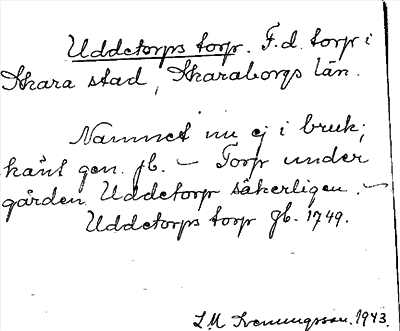 Uddetorps torp. F.d. torp i
Skara stad, Skaraborgs län.
Namnet nu ej i bruk;
känt gen. jb. – Torp under
gården Uddetorp säkerligen. –
Uddetorps torp jb. 1749.
L M Svenungsson. 1943.